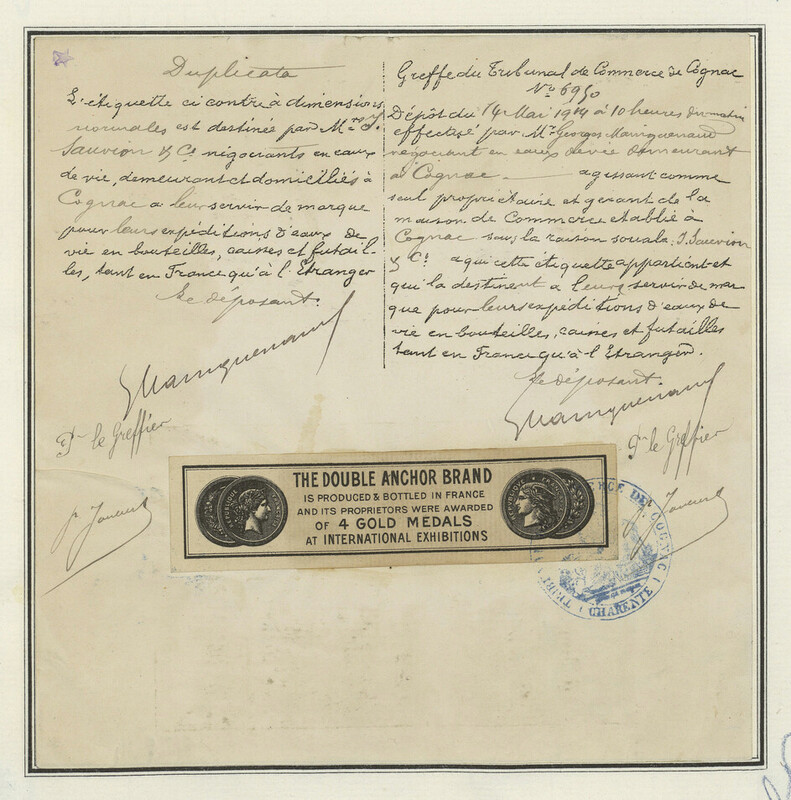 Duplicata
L'étiquette ci contre à dimensions
normales est destinée par Mrs J.
Sauvion & Co négociants en eaux
de vie, demeurant et domiciliés à
Cognac a leur servir de marque
pour leurs expéditions d'eaux de
vie en bouteilles, caisses et futail-
les, tant en France qu'à l'Etranger
Le déposant.
GMainguenaud
Pr le Greffier
Greffe du Tribunal de Commerce de Cognac
No 6950
Dépôt du 14 Mai 1914 à 10 heures du matin
effectué par Mr Georges Mainguenaud
négociant en eaux de vie demeurant
à Cognac agissant comme
seul propriétaire et gérant de la
maison de Commerce etablie à
Cognac sous la raison sociale J. Sauvion
& Co a qui cette étiquette appartient et
qui la destinent a leurs servir de mar
que pour leurs expéditions d'eaux de
vie en bouteilles, caisses et futailles
tant en France qu'à l'Etranger.
Le déposant.
GMainguenaud
Pr le Greffier
THE DOUBLE ANCHOR BRAND
IS PRODUCED & BOTTLED IN FRANCE
AND ITS PROPRIETORS WERE AWARDED
OF 4 GOLD MEDALS
AT INTERNATIONAL EXHIBITIONS
REPUBLIQUE FRANÇAISE
REPUBLIQUE
DE COGNAC
(CHARENTE)